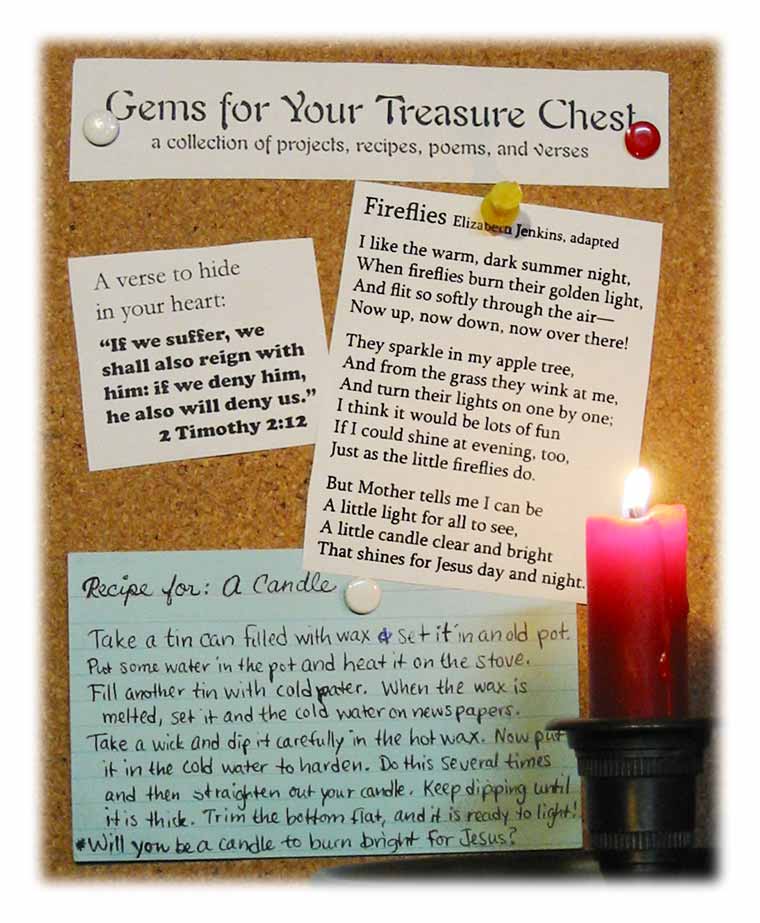 Gems for Your Treasure Chest
a collection of projects, recipes, poems, and verses
A verse to hide
in your heart:
“If we suffer, we
shall also reign with
him: if we deny him,
he also will deny us.”
2 Timothy 2:12
Fireflies Elizabeth Jenkins, adapted
I like the warm, dark summer night,
When fireflies burn their golden light,
And flit so softly through the air—
Now up, now down, now over there!
They sparkle in my apple tree,
And from the grass they wink at me,
And turn their lights on one by one;
I think it would be lots of fun
If I could shine at evening, too,
Just as the little fireflies do.
But Mother tells me I can be
A little light for all to see,
A little candle clear and bright
That shines for Jesus day and night.
Recipe for: A Candle
Take a tin can filled with wax & set it in an old pot.
Put some water in the pot and heat it on the stove.
Fill another tin with cold water. When the wax is
melted, set it and the cold water on newspapers.
Take a wick and dip it carefully in the hot wax. Now put
it in the cold water to harden. Do this several times
and then straighten out your candle. Keep dipping until
it is thick. Trim the bottom flat, and it is ready to light!
*Will you be a candle to burn bright for Jesus?